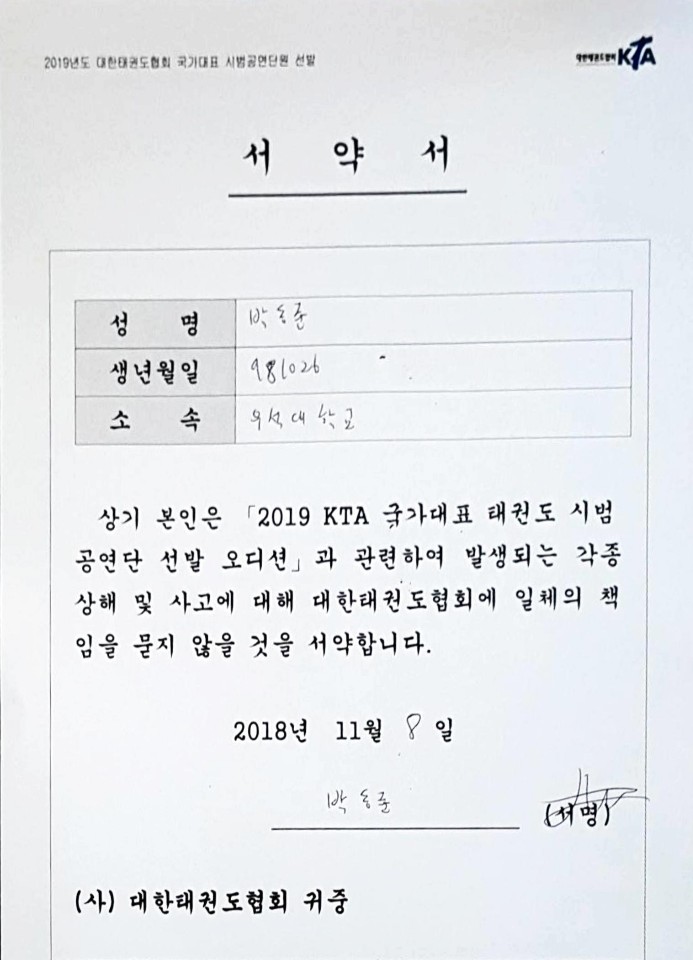 2019년도 대한태권도협회 국가대표 시범공연단원 선발
대한태권도협회 KTA
서 약 서
성 명 박동준
생년월일 981026
소 속 우석대학교
상기 본인은 「2019 KTA 국가대표 태권도 시범
공연단 선발 오디션」과 관련하여 발생되는 각종
상해 및 사고에 대해 대한태권도협회에 일체의 책
임을 묻지 않을 것을 서약합니다.
2018년 11월 8일
박동준 (서명)
(사) 대한태권도협회 귀중